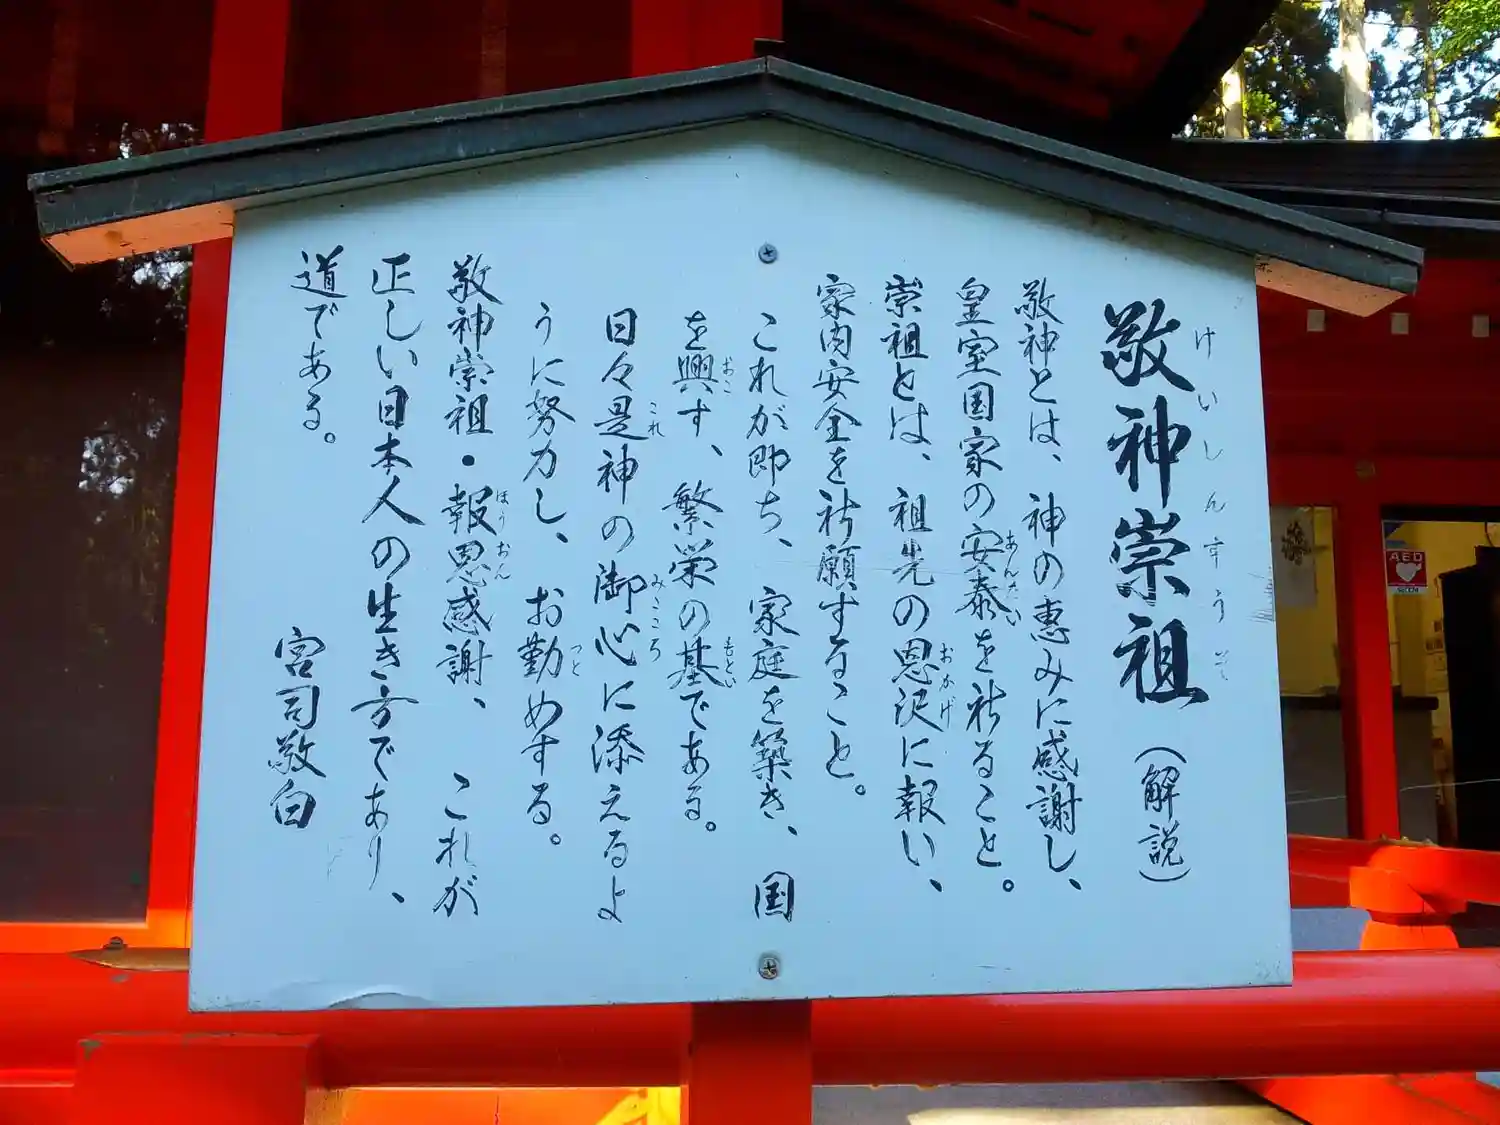 敬神崇祖（解説）
けいしんすうそ
敬神とは、神の恵みに感謝し、
皇室国家の安泰を祈ること。
あんたい
崇祖とは、祖先の恩沢に報い、
おかげ
家内安全を祈願すること。
これが即ち、家庭を築き、国
を興す、繁栄の基である。
おこ
もとい
日々是神の御心に添えるよ
これ
みこころ
うに努力し、お勤めする。
つと
敬神崇祖・報恩感謝、これが
ほうおん
正しい日本人の生き方であり、
道である。
宮司敬白
AED